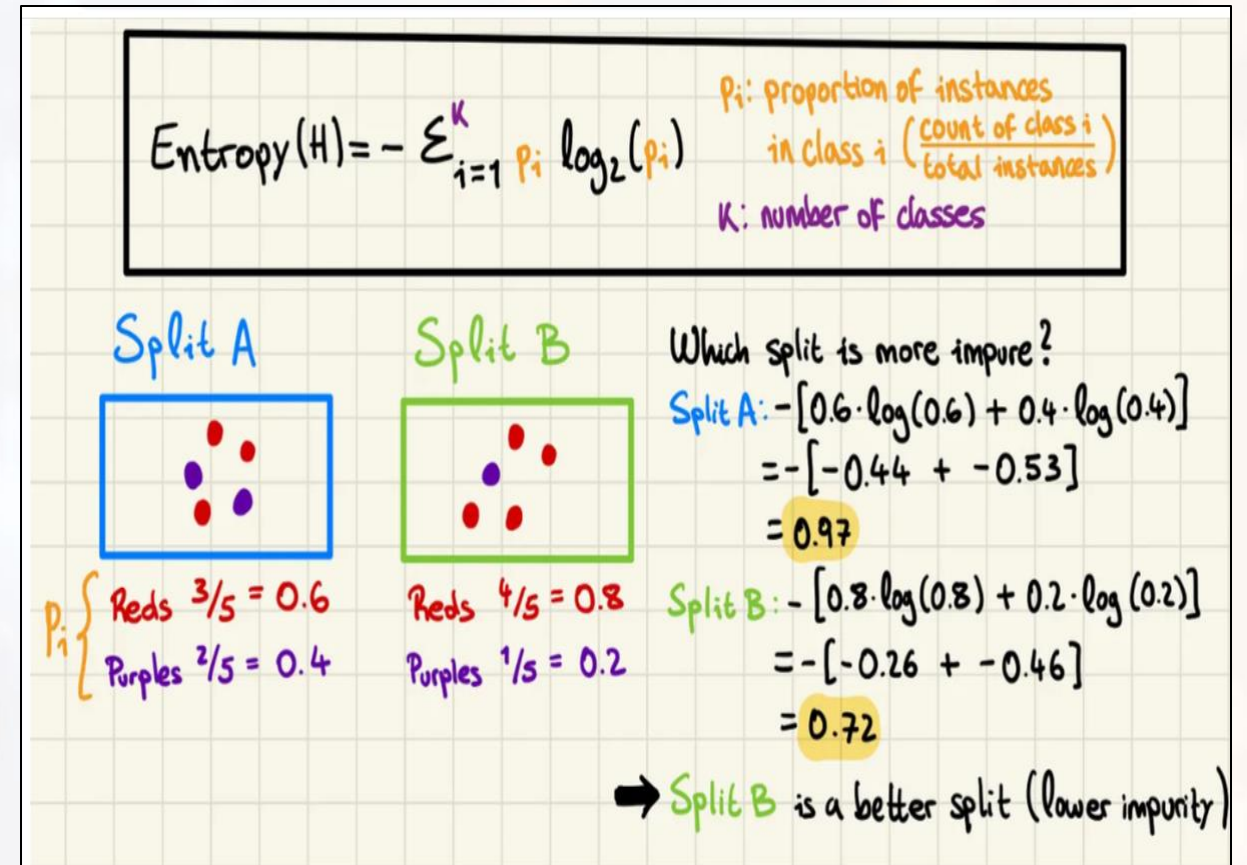 Entropy(H) = - Σ^K_{i=1} Pi log₂(Pi)
Pi: proportion of instances
in class i (count of class i / total instances)
K: number of classes
Split A
Reds 3/5 = 0.6
Purples 2/5 = 0.4
Pi {
Split B
Reds 4/5 = 0.8
Purples 1/5 = 0.2
Which split is more impure?
Split A: -[0.6·log(0.6) + 0.4·log(0.4)]
=-[-0.44 + -0.53]
= 0.97
Split B: - [0.8·log(0.8) + 0.2·log(0.2)]
=-[-0.26 + -0.46]
= 0.72
➡ Split B is a better split (lower impurity)